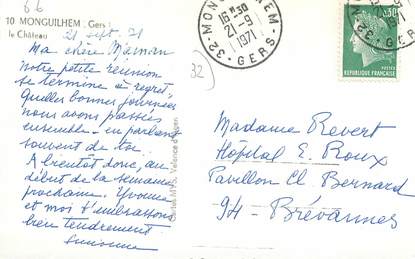 66
10 MONGUILHEM (Gers)
le Château
21 sept. 71
Ma chère Maman
notre petite réunion
se termine à regret,
Quelles bonnes journées
nous avons passées
ensemble - en parlant
souvent de toi.
A bientôt donc, au
début de la semaine
prochaine. Yvonne
et moi t'embrassons
bien tendrement
Simonne
Cartes MYS, Valence d'Agen
32
16H30
21-9
1971
32 - GERS -
0,30
POSTES
REPUBLIQUE FRANÇAISE
Madame Revert
Hôpital E. Roux
Pavillon Cl. Bernard
94 - Brévannes